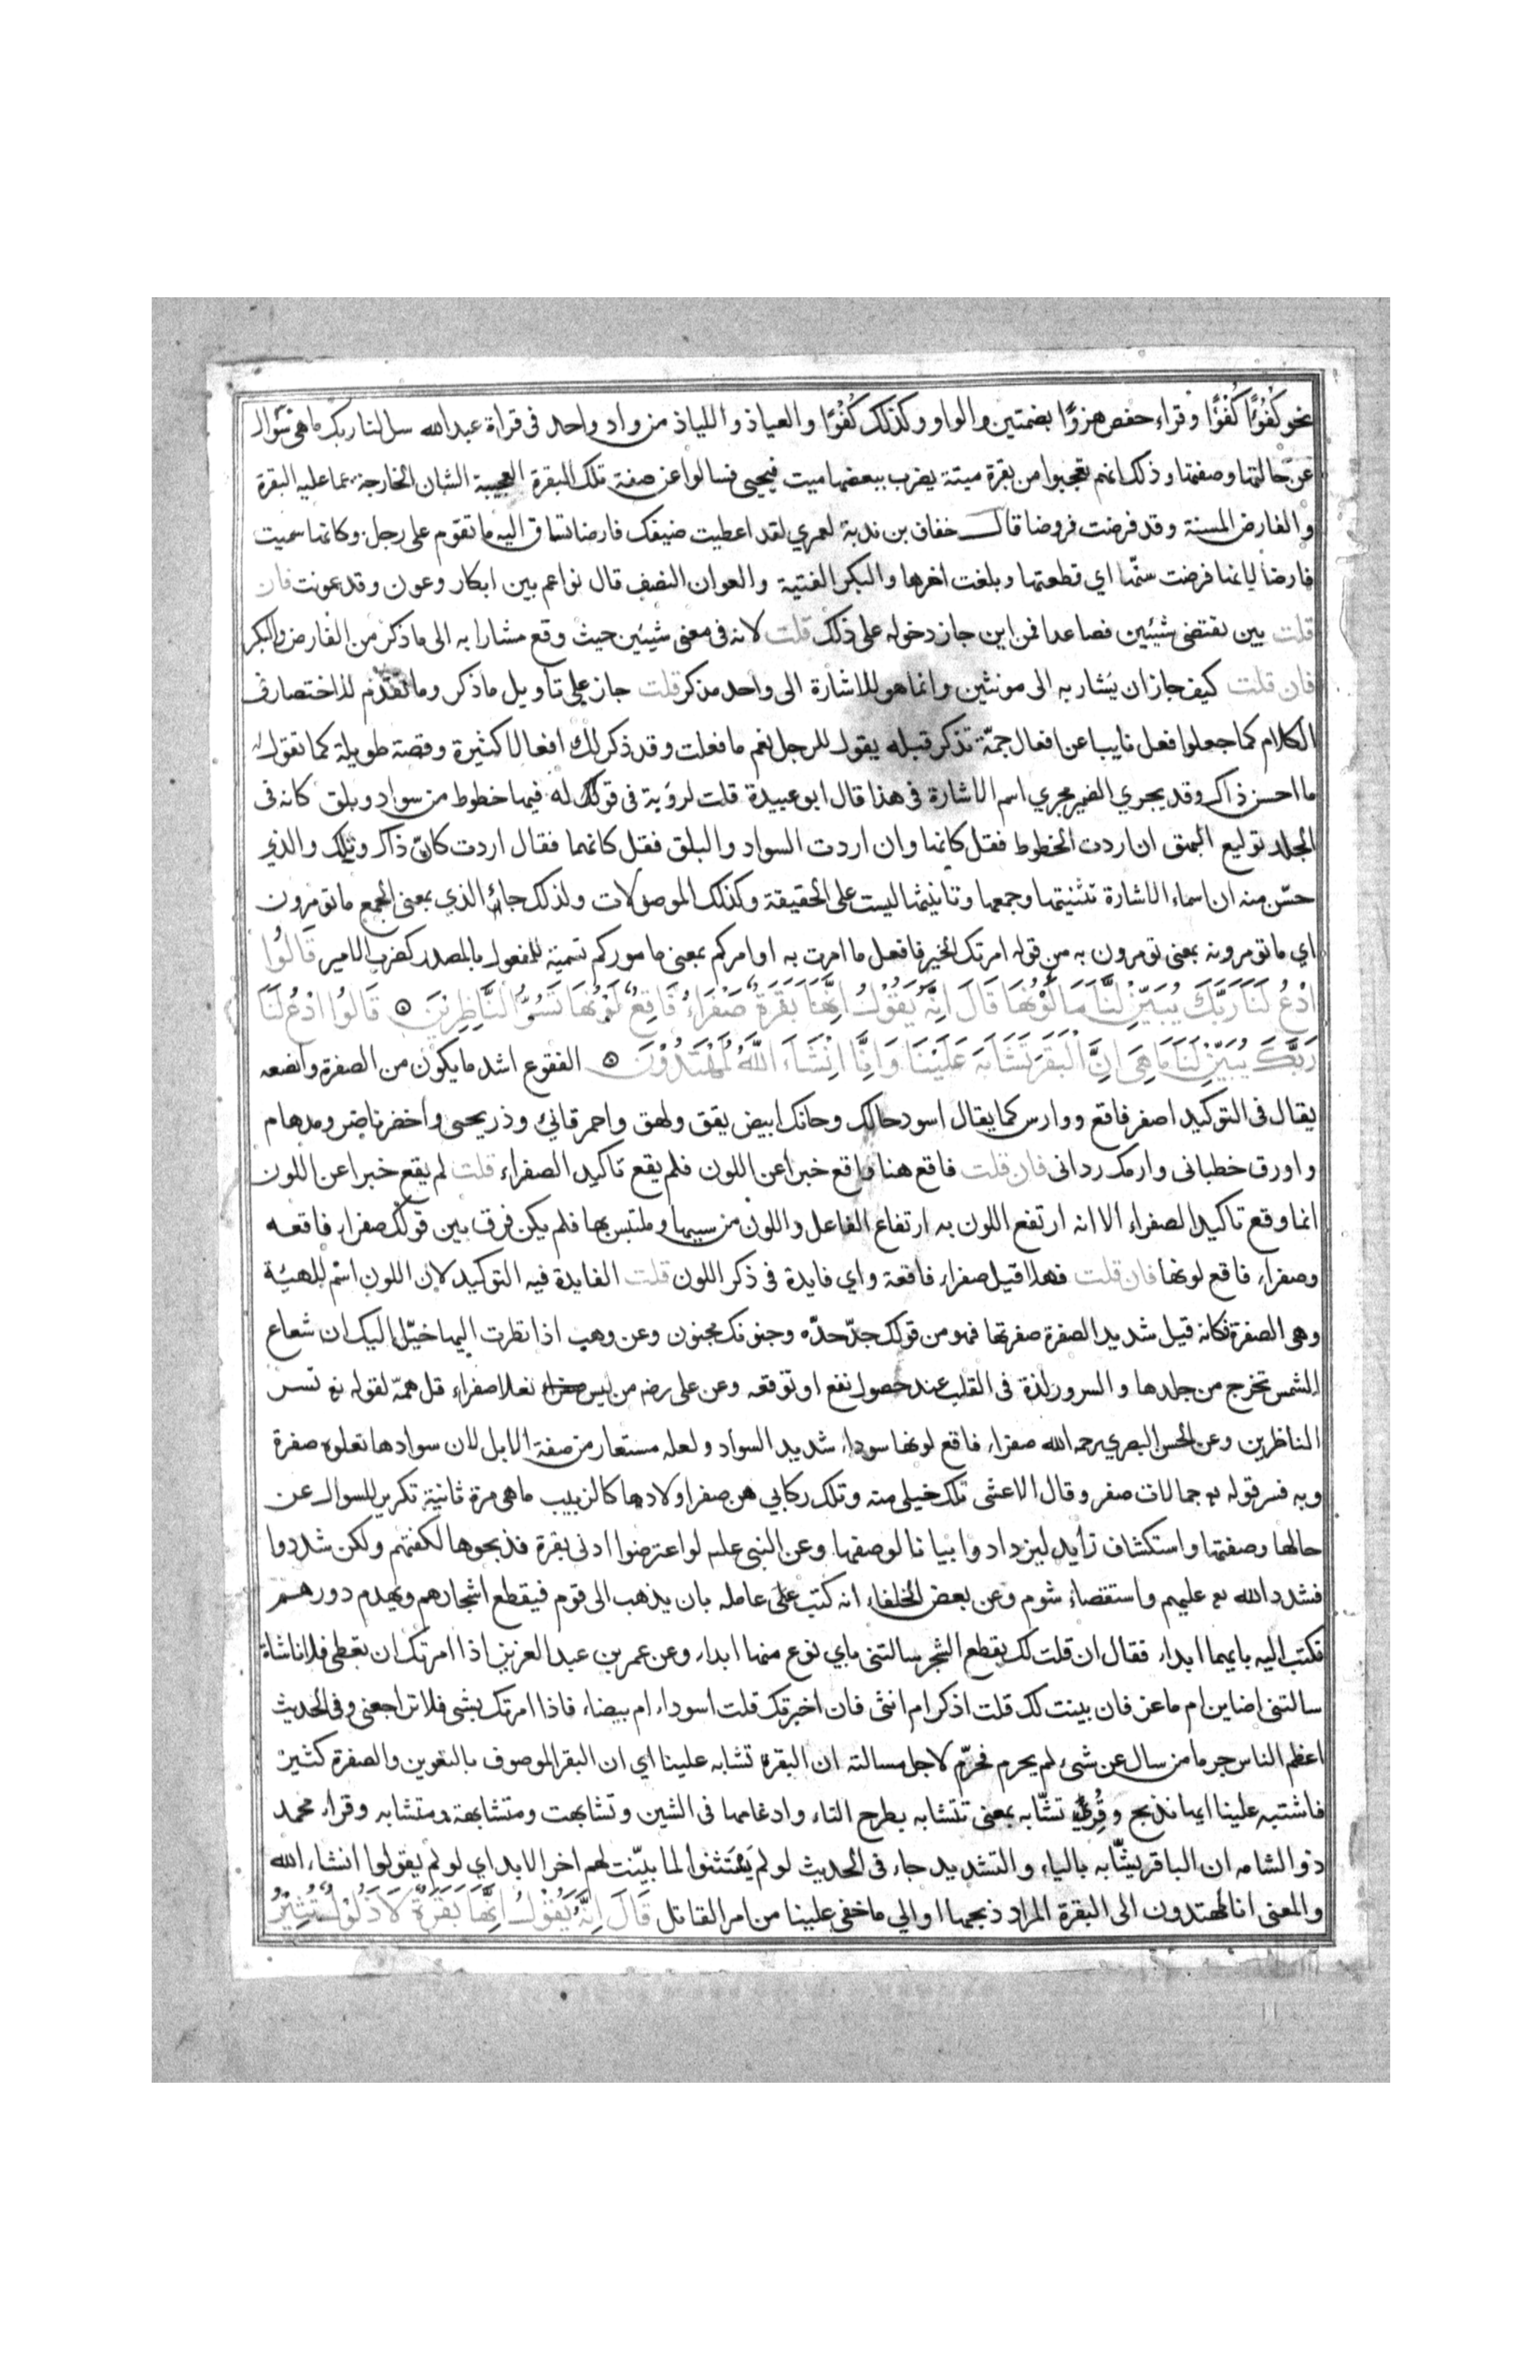 نحو كُفُؤًا كُفْؤًا وقراء حفص هزوًا بضمتين والواو وكذلك كُفُوًا والعياذ واللياذ من واد واحد فى قراة عبد الله سل لنا ربك ما هى سؤال
عن حالتها وصفتها وذلك انهم تعجبوا من بقرة ميتة يضرب ببعضها ميت فيحيى فسالوا عن صفة تلك البقرة العجيبة الشان الخارجة عما عليه البقرة
والفارض المسنة وقد فرضت فروضا قال خفاف بن ندبة لعمري لقد اعطيت ضيفك فارضا تساق اليه ما تقوم على رجل وكانما سميت
فارضا لانها فرضت سنّها اي قطعتها وبلغت اخرها والبكر الفتية والعوان النصف قال نواعم بين ابكار وعون وقد عونت فان
قلت بين تقتضى شيئين فصاعدا فمن اين جاز دخوله على ذلك قلت لانه فى معنى شيئين حيث وقع مشارا به الى ما ذكر من الفارض والبكر
فان قلت كيف جاز ان يشار به الى مونثين وانما هو للاشارة الى واحد مذكر قلت جاز على تاويل ما ذكر وما تقدم للاختصار فى
الكلام كما جعلوا فعل نايبا عن افعال جمّة تذكر قبله يقول للرجل نعم ما فعلت وقد ذكر لك افعالا كثيرة وقصة طويلة كما تقول له
ما احسن ذاك وقد يجري الضمير مجري اسم الاشارة فى هذا قال ابو عبيدة قلت لرؤبة فى قولك له فيها خطوط من سواد وبلق كانه فى
الجلد توليع البهق ان اردت الخطوط فقل كانها وان اردت السواد والبلق فقل كانهما فقال اردت كانّ ذاك ويلك والذي
حسّن منه ان اسماء الاشارة تثنيتها وجمعها وتانيثها ليست على الحقيقة وكذلك الموصولات ولذلك جاء الذي بمعنى الجمع ما تومرون
اي ما تومرونه بمعنى تومرون به من قوله امرتك الخير فافعل ما امرت به او امركم بمعنى ماموركم تسمية للمفعول بالمصدر كضرب الامير قَالُوا
ادْعُ لَنَا رَبَّكَ يُبَيِّنْ لَّنَا مَا لَوْنُهَا قَالَ اِنَّهُ يَقُوْلُ اِنَّهَا بَقَرَةٌ صَفْرَاءُ فَاقِعٌ لَوْنُهَا تَسُرُّ النَّاظِرِيْنَ ۞ قَالُوا ادْعُ لَنَا
رَبَّكَ يُبَيِّنْ لَنَا مَا هِىَ اِنَّ الْبَقَرَ تَشَابَهَ عَلَيْنَا وَاِنَّا اِنْشَاءَ اللّٰهُ لَمُهْتَدُوْنَ ۞ الفقوع اشد ما يكون من الصفرة وانصعه
يقال فى التوكيد اصفر فاقع ووارس كما يقال اسود حالك وحانك وابيض يقق ولهق واحمر قانئ وذريحى واخضر ناضر ومدهام
واورق خطبانى وارمك ردانى فان قلت فاقع هنا واقع خبرا عن اللون فلم يقع تاكيد الصفراء قلت لم يقع خبرا عن اللون
انما وقع تاكيد الصفراء الا انه ارتفع اللون به ارتفاع الفاعل واللون من سببها وملتبس بها فلم يكن فرق بين قولك صفراء فاقعه
وصفراء فاقع لونها فان قلت فهلا قيل صفراء فاقعة واي فايدة فى ذكر اللون قلت الفايدة فيه التوكيد لان اللون اسم للهيئة
وهى الصفرة فكانه قيل شديد الصفرة صفرتها فهو من قولك جدّ جدّه وجنونك مجنون وعن وهب اذا نظرت اليها خيّل اليك ان شعاع
الشمس تخرج من جلدها والسرور لذة فى القلب عند حصول نفع او توقعه وعن على رضه من لبس نعلا صفراء قل همّه لقوله تع تسر
الناظرين وعن الحسن البصري رحمه الله صفراء فاقع لونها سوداء شديد السواد ولعله مستعار من صفة الابل لان سوادها تعلوه صفرة
وبه فسر قوله تع جمالات صفر وقال الاعشى تلك خيلى منه وتلك ركابي هن صفر اولادها كالزبيب ما هى مرة ثانية تكرير للسوال عن
حالها وصفتها واستكشاف زايد ليزدادوا بيانا لوصفها وعن النبى علم لو اعترضوا ادنى بقرة فذبحوها لكفتهم ولكن شددوا
فشدد الله تع عليهم واستقصاء شوم وعن بعض الخلفاء انه كتب على عامله بان يذهب الى قوم فيقطع اشجارهم ويهدم دورهم
فكتب اليه بايهما ابداء فقال ان قلت لك بقطع الشجر سالتنى باي نوع منها ابداء وعن عمر بن عبد العزيز اذا امرتك ان تعطى فلانا شاة
سالتنى اضاين ام ماعز فان بينت لك قلت اذكر ام انثى فان اخبرتك قلت اسوداء ام بيضاء فاذا امرتك بشى فلا تراجعنى وفى الحديث
اعظم الناس جرما من سال عن شىء لم يحرم فحرّم لاجل مسالته ان البقرة تشابه علينا اي ان البقر الموصوف بالتعوين والصفرة كثير
فاشتبه علينا ايها نذبح وقُرئ تشّابه بمعنى تتشابه بطرح التاء وادغامها فى الشين وتشابهت ومتشابهة ومتشابه وقراء محمد
ذو الشامه ان الباقر يشّابه بالياء والتشديد جاء فى الحديث لو لم يَسْتَثنوا لما بيّنت لهم اخر الابد اي لو لم يقولوا انشاء الله
والمعنى انا لمهتدون الى البقرة المراد ذبحها او الي ما خفى علينا من امر القاتل قَالَ اِنَّهُ يَقُوْلُ اِنَّهَا بَقَرَةٌ لَا ذَلُوْلٌ تُثِيْرُ